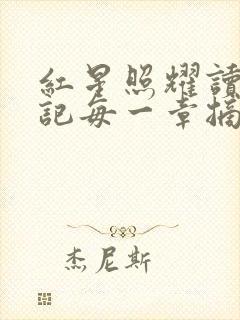 紅星照耀讀
記每一章摘
杰尼斯